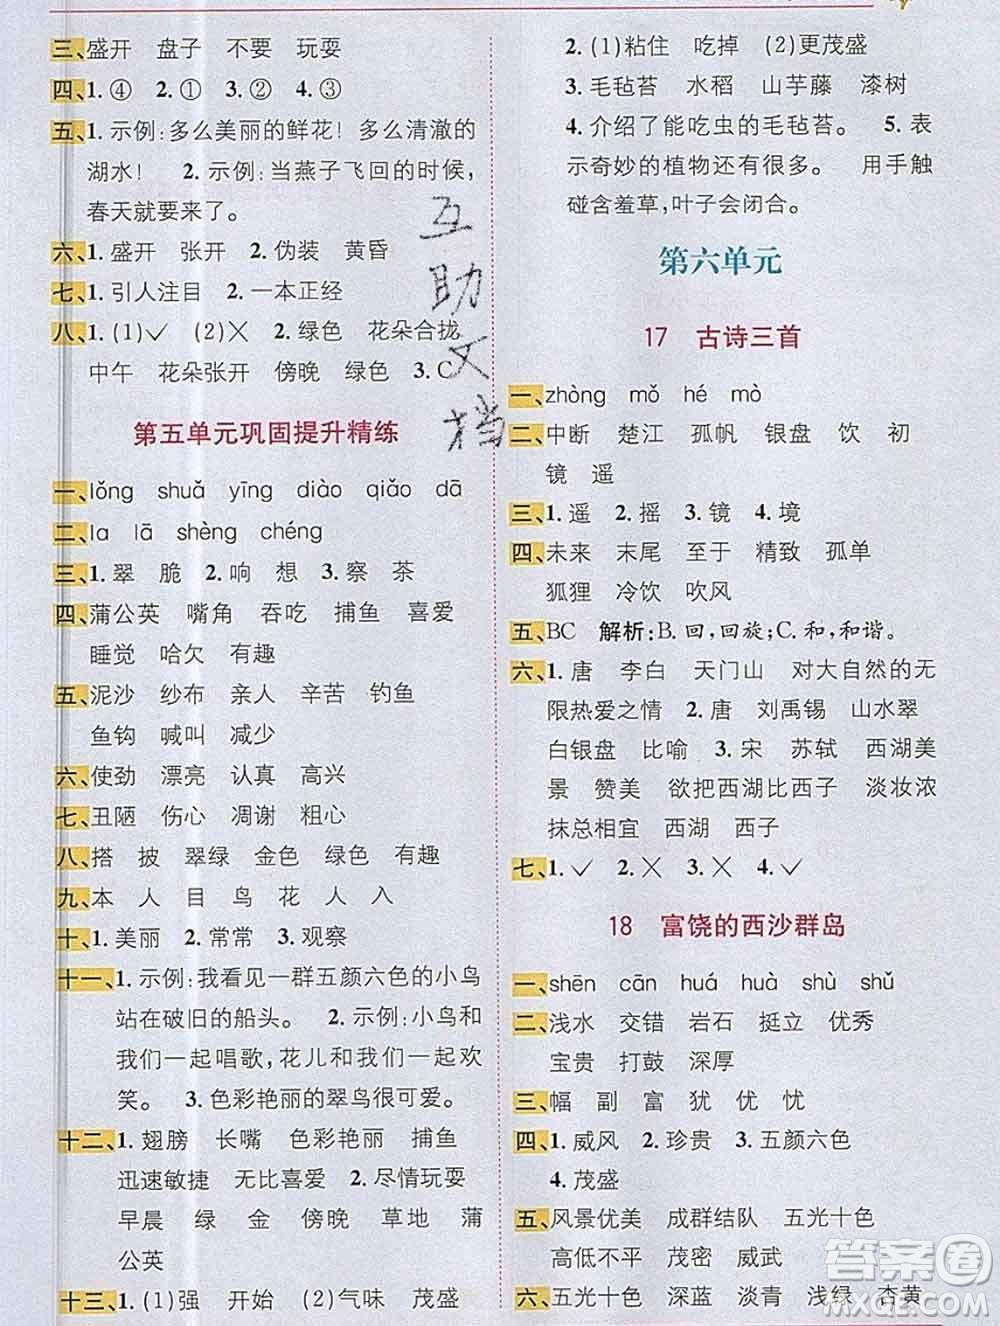 三、盛开 盘子 不要 玩耍
四、1. ④ 2. ① 3. ② 4. ③
五、1. 示例:多么美丽的鲜花! 多么清澈的
湖水! 2. 示例:当燕子飞回的时候,
春天就要来了。
六、1. 盛开 张开 2. 伪装 黄昏
七、1. 引人注目 2. 一本正经
八、1. (1)✓ (2)✗ 2. 绿色 花朵合拢
中午 花朵张开 傍晚 绿色 3. C
第五单元巩固提升精练
一、lǒng shuǎ yīng diào qiǎo dā
二、la lā shèng chéng
三、1. 翠 脆 2. 响 想 3. 察 茶
四、蒲公英 嘴角 吞吃 捕鱼 喜爱
睡觉 哈欠 有趣
五、泥沙 纱布 亲人 辛苦 钓鱼
鱼钩 喊叫 减少
六、使劲 漂亮 认真 高兴
七、丑陋 伤心 凋谢 粗心
八、搭 披 翠绿 金色 绿色 有趣
九、本 人 目 鸟 花 人 入
十、1. 美丽 2. 常常 3. 观察
十一、1. 示例:我看见一群五颜六色的小鸟
站在破旧的船头。 2. 示例:小鸟和
我们一起唱歌,花儿和我们一起欢
笑。 3. 色彩艳丽的翠鸟很可爱。
十二、1. 翅膀 长嘴 色彩艳丽 捕鱼
迅速敏捷 无比喜爱 2. 尽情玩耍
早晨 绿 金 傍晚 草地 蒲
公英
十三、1. (1)强 开始 (2)气味 茂盛
2. (1)粘住 吃掉 (2)更茂盛
3. 毛毡苔 水稻 山芋藤 漆树
4. 介绍了能吃虫的毛毡苔。 5. 表
示奇妙的植物还有很多。 用手触
碰含羞草,叶子会闭合。
第六单元
17 古诗三首
一、zhòng mǒ hé mò
二、中断 楚江 孤帆 银盘 饮 初
镜 遥
三、1. 遥 2. 摇 3. 镜 4. 境
四、未来 末尾 至于 精致 孤单
狐狸 冷饮 吹风
五、BC 解析:B. 回,回旋;C. 和,和谐。
六、1. 唐 李白 天门山 对大自然的无
限热爱之情 2. 唐 刘禹锡 山水翠
白银盘 比喻 3. 宋 苏轼 西湖美
景 赞美 欲把西湖比西子 淡妆浓
抹总相宜 西湖 西子
七、1. ✓ 2. ✗ 3. ✗ 4. ✓
18 富饶的西沙群岛
一、shēn cān huá huà shù shǔ
二、浅水 交错 岩石 挺立 优秀
宝贵 打鼓 深厚
三、幅 副 富 犹 优 忧
四、1. 威风 2. 珍贵 3. 五颜六色
4. 茂盛
五、风景优美 成群结队 五光十色
高低不平 茂密 威武
六、五光十色 深蓝 淡青 浅绿 杏黄
互助文档
答案圈
MXQE.COM